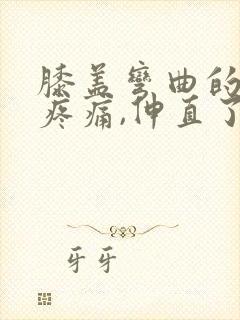 膝盖弯曲的
疼痛,伸直了
牙牙